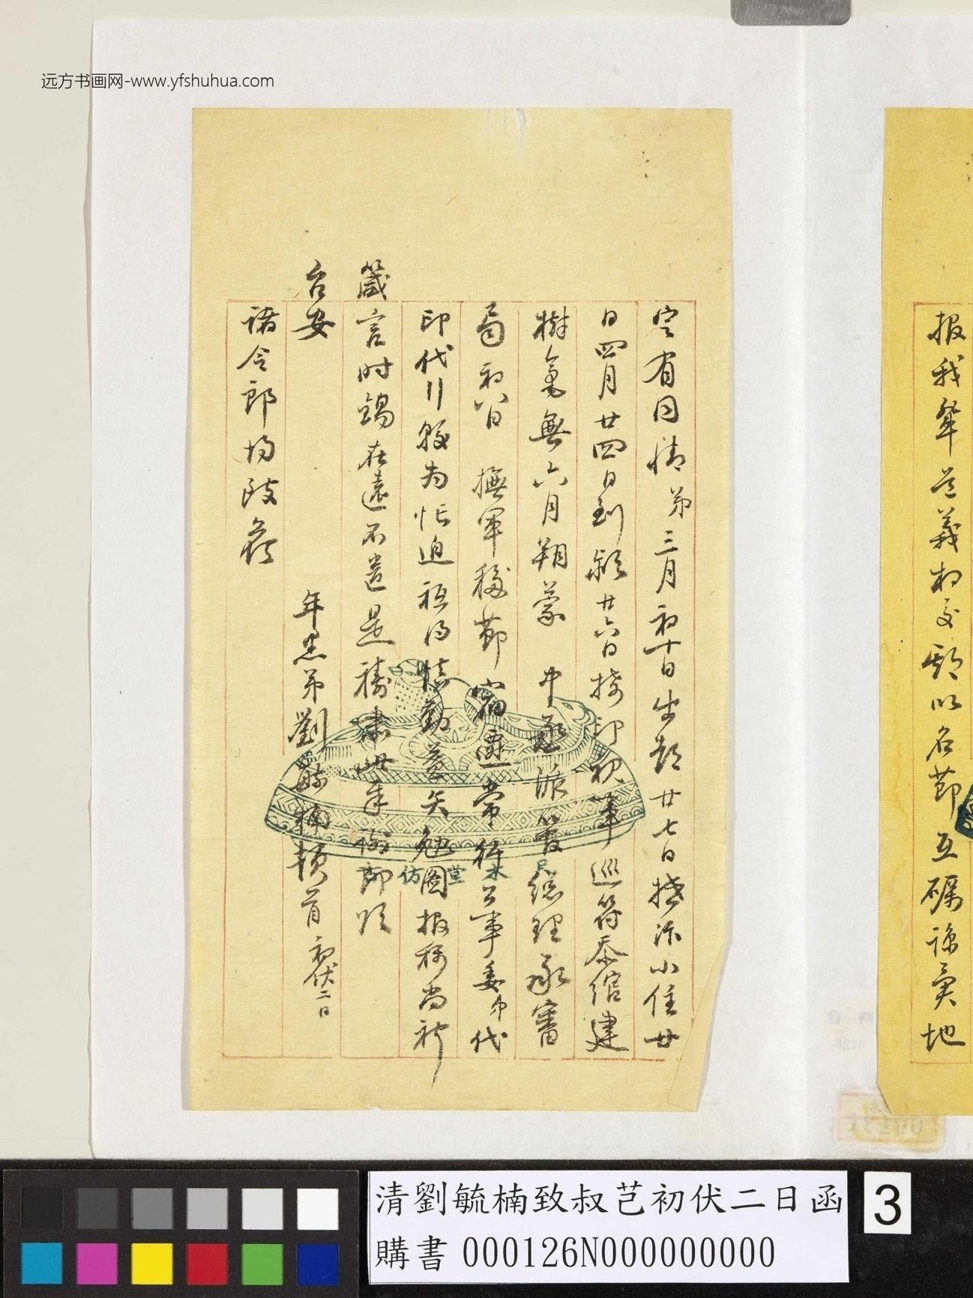 远方书画网-www.yfshuhua.com
報我輩道義相交期以名節互礪詠異地
定有同情弟三月初十日出都廿七日抵沂小住廿
日四月廿四日到潁廿六日接印視事巡符忝綰建
樹毫無六月朔蒙 中丞派簽總理承審
局初八日 撫軍移節 壽 常行公事委弟代
印代行 為忙迫祇得慎勤 矢勉圖報稱尚祈
箴言時錫在遠不遺是禱肅此奉謝即頌
台安
諸令郎均致候
年愚弟劉毓楠頓首 初伏二日
清劉毓楠致叔芑初伏二日函
購書 000126N000000000
3